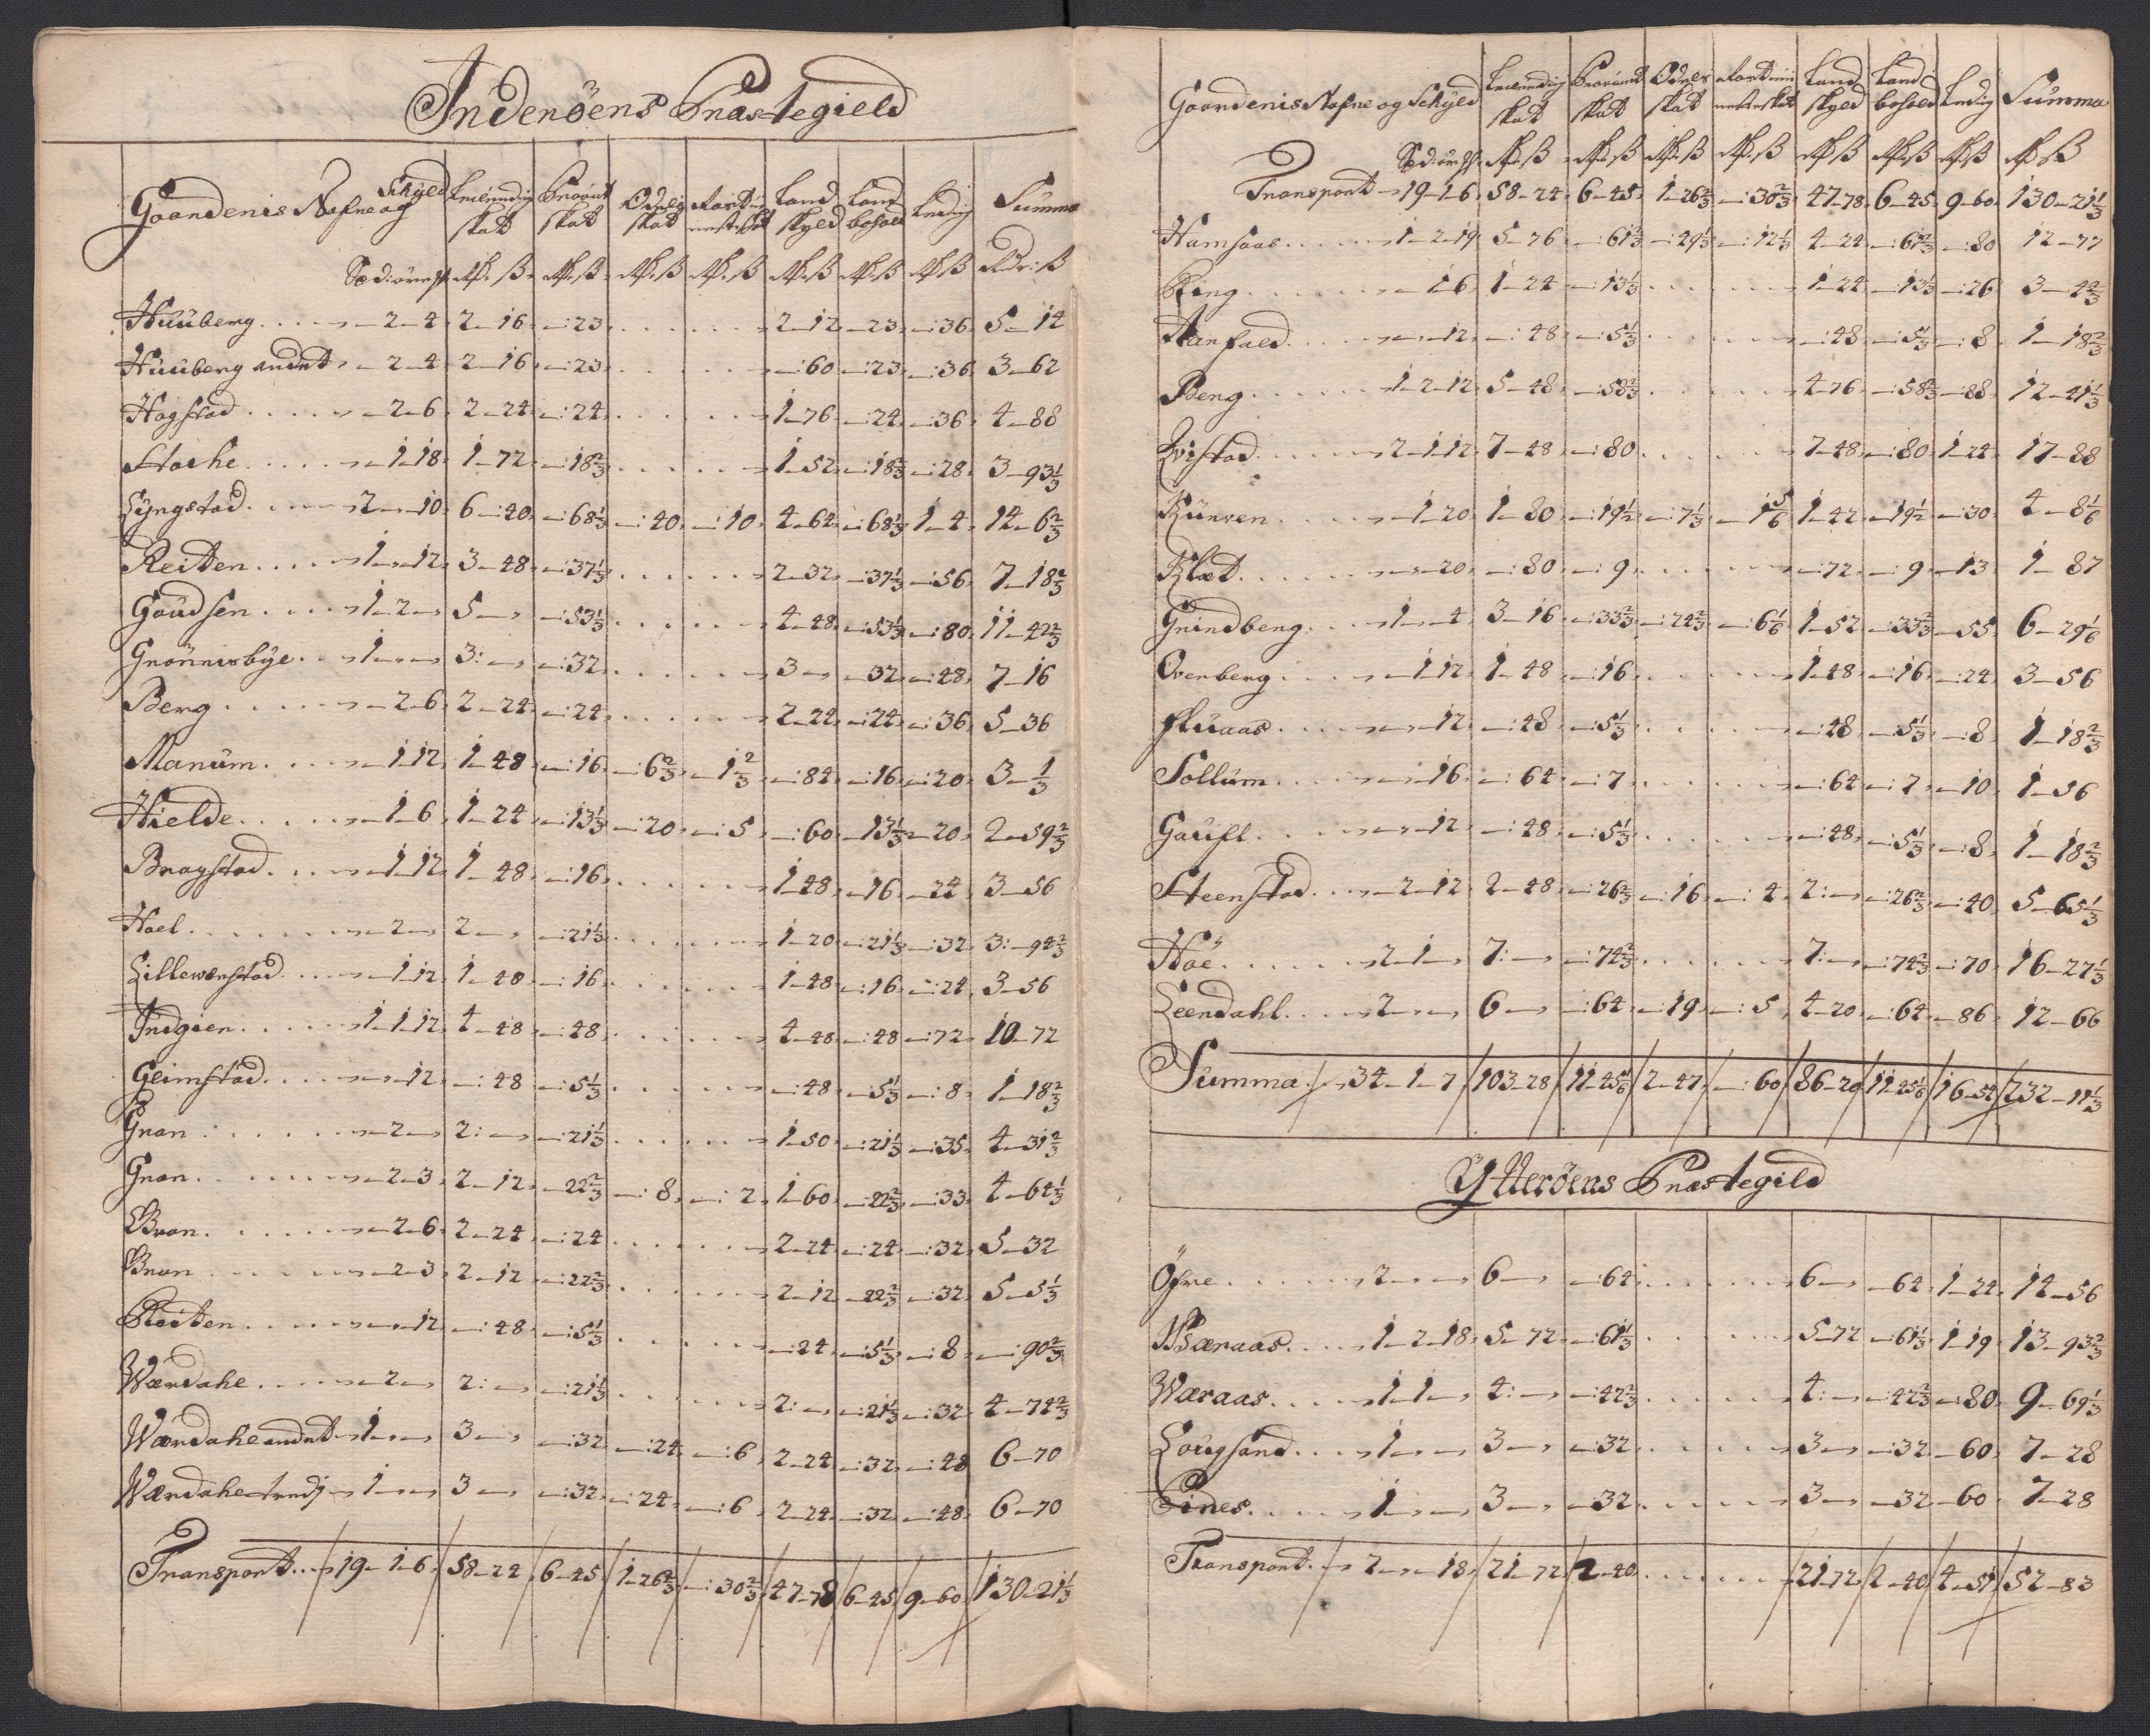 Inderöens Præstegield
Gaardenis Nafne og Schÿld Leilendig skat Proviant skat Odels skat Land skyld Land bohold Leding Summa
Huuberg - 2 - 4 2 - 16 - : 23 2 - 12 - 23 - : 36 5 - 14
Huuberg andet - 2 - 4 2 - 16 - : 23 - : 60 - : 23 - : 36 3 - 62
Hagstad - 2 - 6 2 - 24 - : 24 1 - 76 - : 24 - : 36 4 - 88
Stoche - 1 - 18 1 - 72 - : 18 2/3 1 - 52 - : 18 2/3 - : 28 3 - 93 1/3
Lÿngstad 2 - - 10 6 - : 40 - : 68 1/3 - : 40 - : 10 4 - 64 - : 68 1/3 1 - 4 14 - 6 2/3
Reitten 1 - - 12 3 - 48 - : 37 1/3 2 - 32 - : 37 1/3 - : 56 7 - 18 2/3
Gaudsen 1 - 2 - 5 - - : 53 1/3 4 - 48 - : 53 1/3 - : 80 11 - 42 2/3
Grönnisbÿe 1 - - 3 : - - : 32 3 - - 32 - : 48 7 - 16
Berg - 2 - 6 2 - 24 - : 24 2 - 24 - : 24 - : 36 5 - 36
Manum - 1 - 12 1 - 48 - : 16 - : 6 2/3 - 1 2/3 - : 84 - : 16 - : 20 3 - 1/3
Hielde - 1 - 6 1 - 24 - : 13 1/3 - : 20 - : 5 - : 60 - 13 1/3 - 20 2 - 59 2/3
Bragstad - 1 - 12 1 - 48 - : 16 1 - 48 - 16 - 24 3 - 56
Hoel - 2 - 2 - - : 21 1/3 1 - 20 - : 21 1/3 - : 32 3 : - 94 2/3
Lillewerstad - 1 - 12 1 - 48 - : 16 1 - 48 - : 16 - : 24 3 - 56
Indgien 1 - 1 - 12 4 - 48 - : 48 4 - 48 - : 48 - : 72 10 - 72
Geimstad - - 12 - : 48 - : 5 1/3 - : 48 - : 5 1/3 - : 8 1 - 18 2/3
Gran - 2 - 2 : - - : 21 1/3 1 - 50 - : 21 1/3 - : 35 4 - 31 2/3
Gran - 2 - 3 2 - 12 - 22 2/3 - : 8 - : 2 1 - 60 - : 22 2/3 - : 33 4 - 64 1/3
Bran - 2 - 6 2 - 24 - : 24 2 - 24 - : 24 - : 32 5 - 32
Bran - 2 - 3 2 - 12 - : 22 2/3 2 - 12 - 22 2/3 - : 32 5 - 5 1/3
Reiten - - 12 - : 48 - : 5 1/3 - : 24 - : 5 1/3 - : 8 - : 90 2/3
Wærdahe - 2 - 2 : - - : 21 1/3 2 : - - : 21 1/3 - : 32 4 - 74 2/3
Wærdahe andet 1 - - 3 - - : 32 - : 24 - : 6 2 - 24 - : 32 - : 48 6 - 70
Wærdahe tredj 1 - - 3 - - : 32 - : 24 - : 6 2 - 24 - : 32 - : 48 6 - 70
Transport 19 - 1 - 6 58 - 24 6 - 45 1 - 26 2/3 - : 30 2/3 47 - 78 6 - 45 9 - 60 130 - 21 1/3
Gaardenis Nafne og Schÿld Leilendig skat Proviant skat Odels skat Land skyld Land bohold Leding Summa
Transport 19 - 1 - 6 58 - 24 6 - 45 1 - 26 2/3 - : 30 2/3 47 - 78 6 - 45 9 - 60 130 - 21 1/3
Hamsaas 1 - 2 - 19 5 - 76 - : 61 2/3 - : 49 1/3 - : 12 1/3 4 - 24 - : 61 2/3 - : 80 12 - 77
Ring - 1 - 6 1 - 24 - : 13 1/3 1 - 24 - : 13 1/3 - : 26 3 - 4 2/3
Aanfald - - 12 - : 48 - : 5 1/3 - : 48 - : 5 1/3 - : 8 1 - 18 2/3
Berg 1 - 2 - 12 5 - 48 - : 58 2/3 4 - 76 - : 58 2/3 - : 88 12 - 41 1/3
Qvistad 2 - 1 - 12 7 - 48 - : 80 7 - 48 - : 80 1 - 24 17 - 88
Kurven - 1 - 20 1 - 80 - : 19 1/2 - : 7 1/3 - 1 5/6 1 - 42 - 19 1/2 - : 30 4 - 8 1/6
Klæt - - 20 - : 80 - : 9 - : 72 - : 9 - 13 1 - 87
Grindberg 1 - - 4 3 - 16 - : 33 2/3 - : 24 2/3 - : 6 1/6 1 - 52 - : 33 2/3 - 55 6 - 29 1/6
Overberg - 1 - 12 1 - 48 - : 16 1 - 48 - : 16 - : 24 3 - 56
fluaas - - 12 - : 48 - : 5 1/3 - : 48 - : 5 1/3 - : 8 1 - 18 2/3
Sollum - - 16 - : 64 - : 7 - : 64 - : 7 - : 10 1 - 56
Gaufl - - 12 - : 48 - : 5 1/3 - : 48 - : 5 1/3 - : 8 1 - 18 2/3
Steenstad - 2 - 12 2 - 48 - : 26 2/3 - : 16 - : 4 2 : - - : 26 2/3 - : 40 5 - 65 1/3
Höe 2 - 1 - 7 : - - : 74 2/3 7 : - - : 74 2/3 - : 70 16 - 27 1/3
Leerdahl 2 - - 6 - - : 64 - : 19 - : 5 4 - 20 - : 64 - 86 12 - 66
Summa 34 - 1 - 7 103 - 28 11 - 45 1/6 2 - 47 - : 60 86 - 20 11 - 45 1/6 16 - 54 232 - 11 1/3
Ytteröens Præstegild
Öfre 2 - - 6 - - : 64 6 - - 64 1 - 24 14 - 56
Wæraas 1 - 2 - 18 5 - 72 - : 61 1/3 5 - 72 - 61 1/3 1 - 19 13 - 93 2/3
Wæraas 1 - 1 - 4 : - - : 42 2/3 4 : - - : 42 2/3 - : 80 9 - 69 1/3
Lougsand 1 - - 3 - - : 32 3 - - : 32 - 60 7 - 28
Eines 1 - - 3 - - : 32 3 - - 32 - 60 7 - 28
Transport 7 - - 18 21 - 72 2 - 40 21 - 72 2 - 40 4 - 51 52 - 83